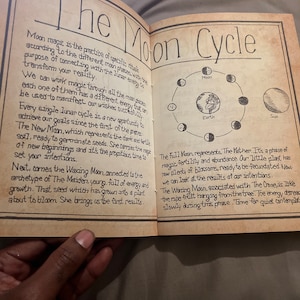 The Moon Cycle
Moon magic is the practice of specific rituals
according to the different moon phases, with the
purpose of connecting with the lunar energy to
transform your reality.
We can work magic through all the moon phases,
each one of them has a different energy that can
be used to manifest our wishes
Every single lunar cycle is a new opportunity to
achieve our goals since the first of the phases.
The New Moon, which represents the dark and fertile
soil, ready to germinate seeds. She carries the magic
of new beginnings and it's the propitious time to
set your intentions.
Next, comes the Waxing Moon, connected to the
archetype of The Maiden, young, full of energy and
growth. That seed which has grown into a plant
about to bloom. She brings us the first results
Earth
Sun
The Full Moon represents The Mother. It's a phase of
magic, fertility and abundance. Our little plant has
now blooms of blossoms, ready to be harvested. Now
we can look at the results of our intentions.
The Waning Moon, associated with The Crone, is like
the rose petals hanging from the tree. The energy
slowly during this phase. Time for quiet contemplation